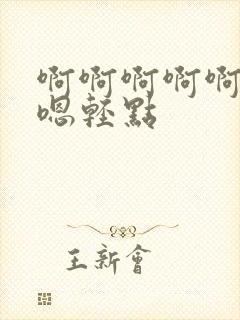 啊啊啊啊啊
嗯輕點
王新會